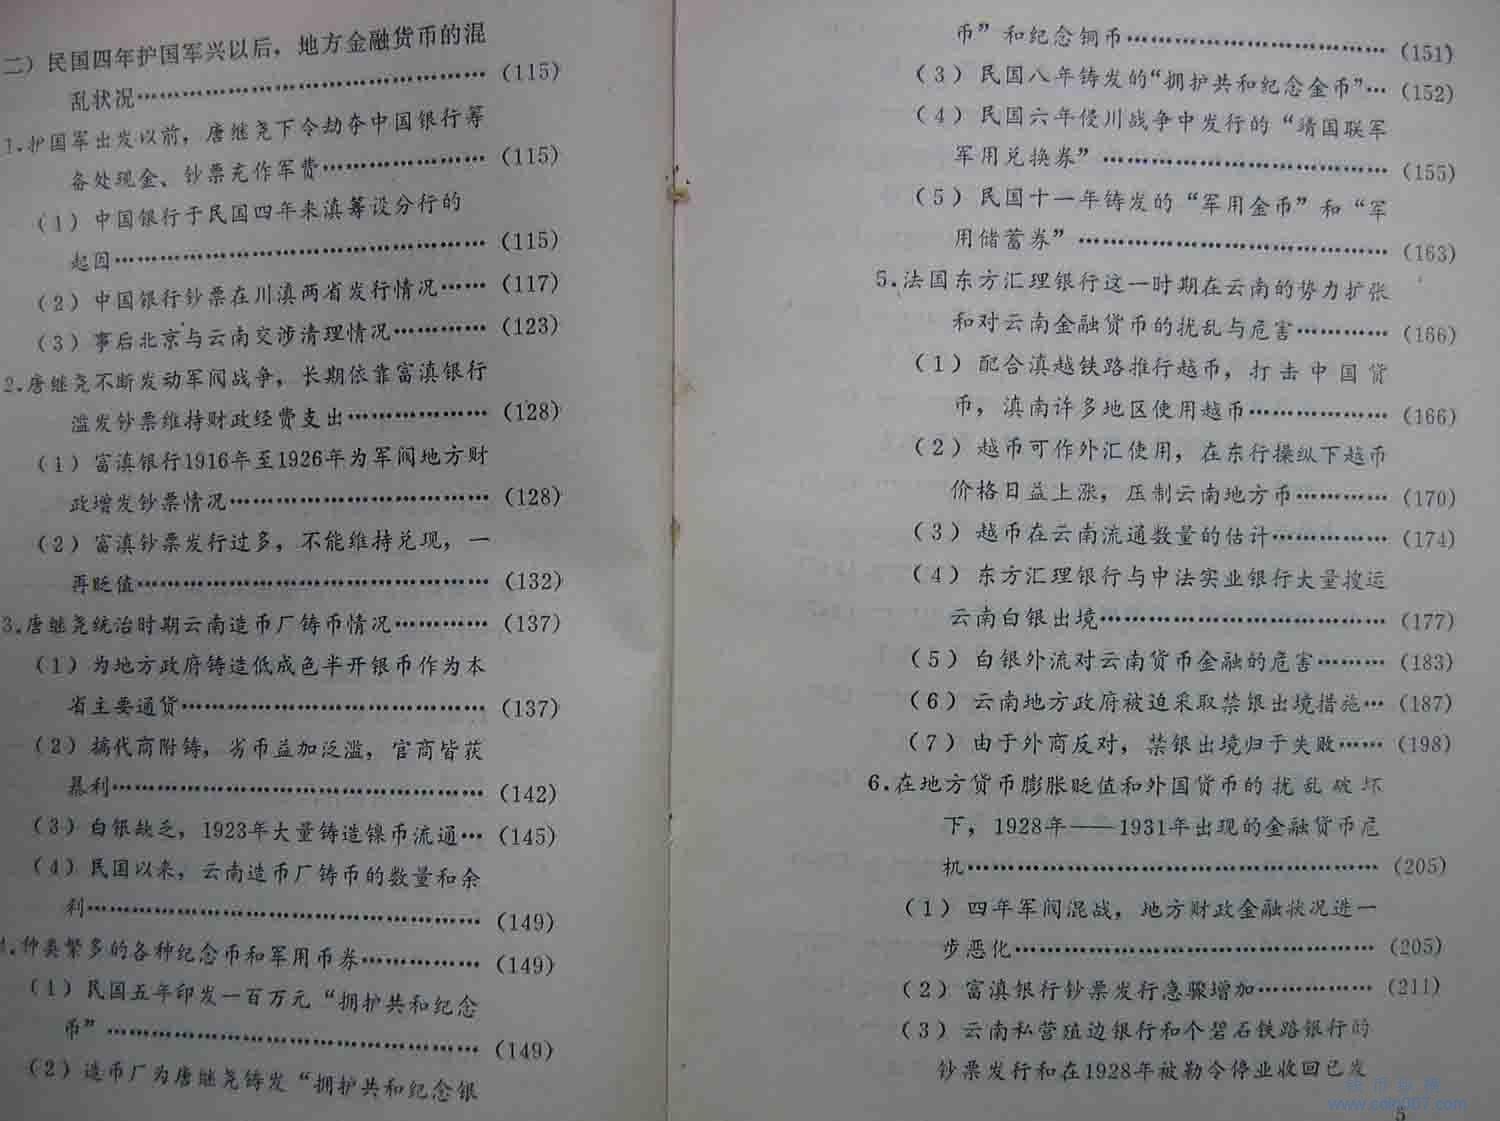 二）民国四年护国军兴以后，地方金融货币的混
乱状况………………………………（115）
1.护国军出发以前，唐继尧下令劫夺中国银行筹
备处现金、钞票充作军费………………（115）
（1）中国银行于民国四年来滇筹设分行的
起因…………………………………（115）
（2）中国银行钞票在川滇两省发行情况……（117）
（3）事后北京与云南交涉清理情况…………（123）
2.唐继尧不断发动军阀战争，长期依靠富滇银行
滥发钞票维持财政经费支出……………（128）
（1）富滇银行1916年至1926年为军阀地方财
政增发钞票情况………………………（128）
（2）富滇钞票发行过多，不能维持兑现，一
再贬值………………………………（132）
3.唐继尧统治时期云南造币厂铸币情况…………（137）
（1）为地方政府铸造低成色半开银币作为本
省主要通货…………………………（137）
（2）搞代商附铸，劣币益加泛滥，官商皆获
暴利…………………………………（142）
（3）白银缺乏，1923年大量铸造镍币流通…（145）
（4）民国以来，云南造币厂铸币的数量和余
利……………………………………（149）
4.种类繁多的各种纪念币和军用币券……………（149）
（1）民国五年印发一百万元“拥护共和纪念
币”…………………………………（149）
（2）造币厂为唐继尧铸发“拥护共和纪念银
币”和纪念铜币………………………（151）
（3）民国八年铸发的“拥护共和纪念金币”…（152）
（4）民国六年侵川战争中发行的“靖国联军
军用兑换券”…………………………（155）
（5）民国十一年铸发的“军用金币”和“军
用储蓄券”……………………………（163）
5.法国东方汇理银行这一时期在云南的势力扩张
和对云南金融货币的扰乱与危害…………（166）
（1）配合滇越铁路推行越币，打击中国货
币，滇南许多地区使用越币……………（166）
（2）越币可作外汇使用，在东行操纵下越币
价格日益上涨，压制云南地方币…………（170）
（3）越币在云南流通数量的估计……………（174）
（4）东方汇理银行与中法实业银行大量搜运
云南白银出境…………………………（177）
（5）白银外流对云南货币金融的危害………（183）
（6）云南地方政府被迫采取禁银出境措施…（187）
（7）由于外商反对，禁银出境归于失败……（198）
6.在地方货币膨胀贬值和外国货币的扰乱破坏
下，1928年——1931年出现的金融货币危
机……………………………………（205）
（1）四年军阀混战，地方财政金融状况进一
步恶化…………………………………（205）
（2）富滇银行钞票发行急骤增加……………（211）
（3）云南私营殖边银行和个碧石铁路银行的
钞票发行和在1928年被勒令停业收回已发
5
www.coin007.com